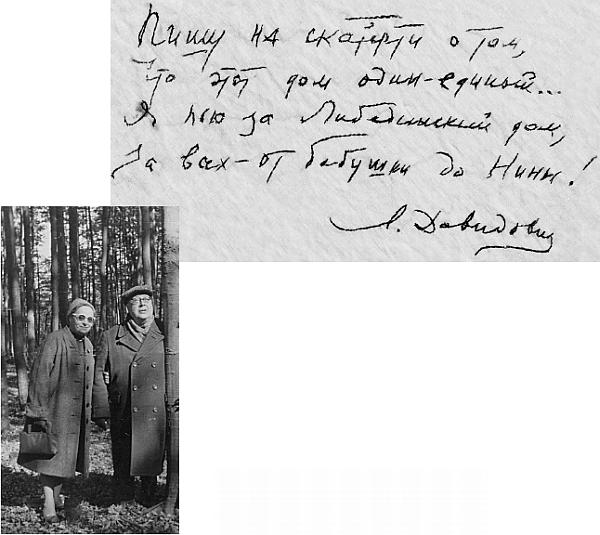 Пишу на скатерти о том,
Что этот дом один-единый...
Я пью за Либединский дом,
За вах - от бабушки до Нины!
Л. Давидович